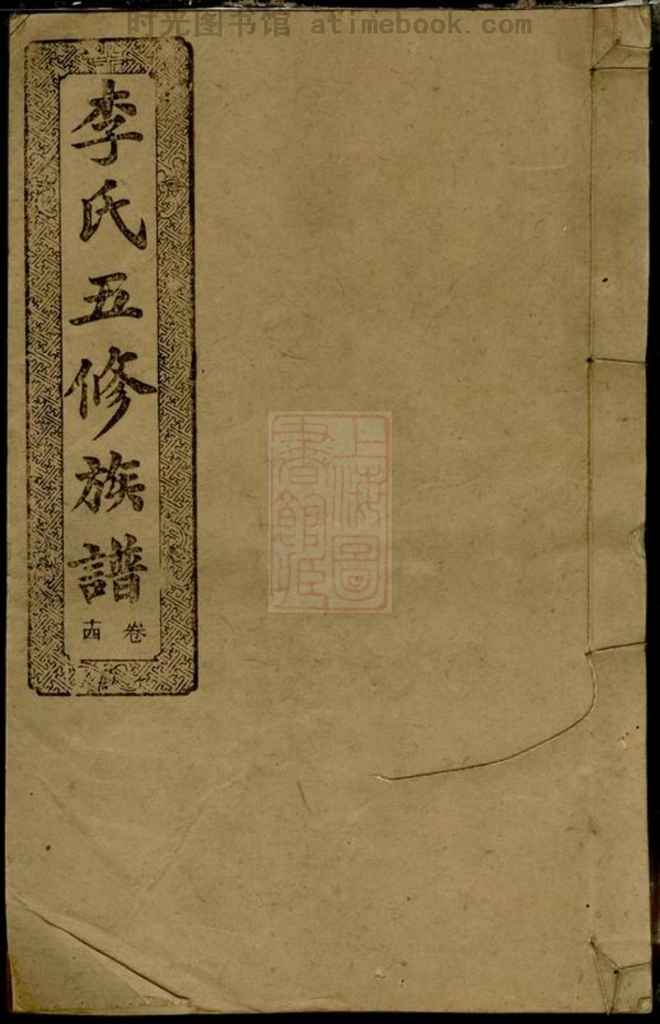 时光图书馆 atimebook.com
李氏五修族譜
卷
十四
上海圖
書館藏